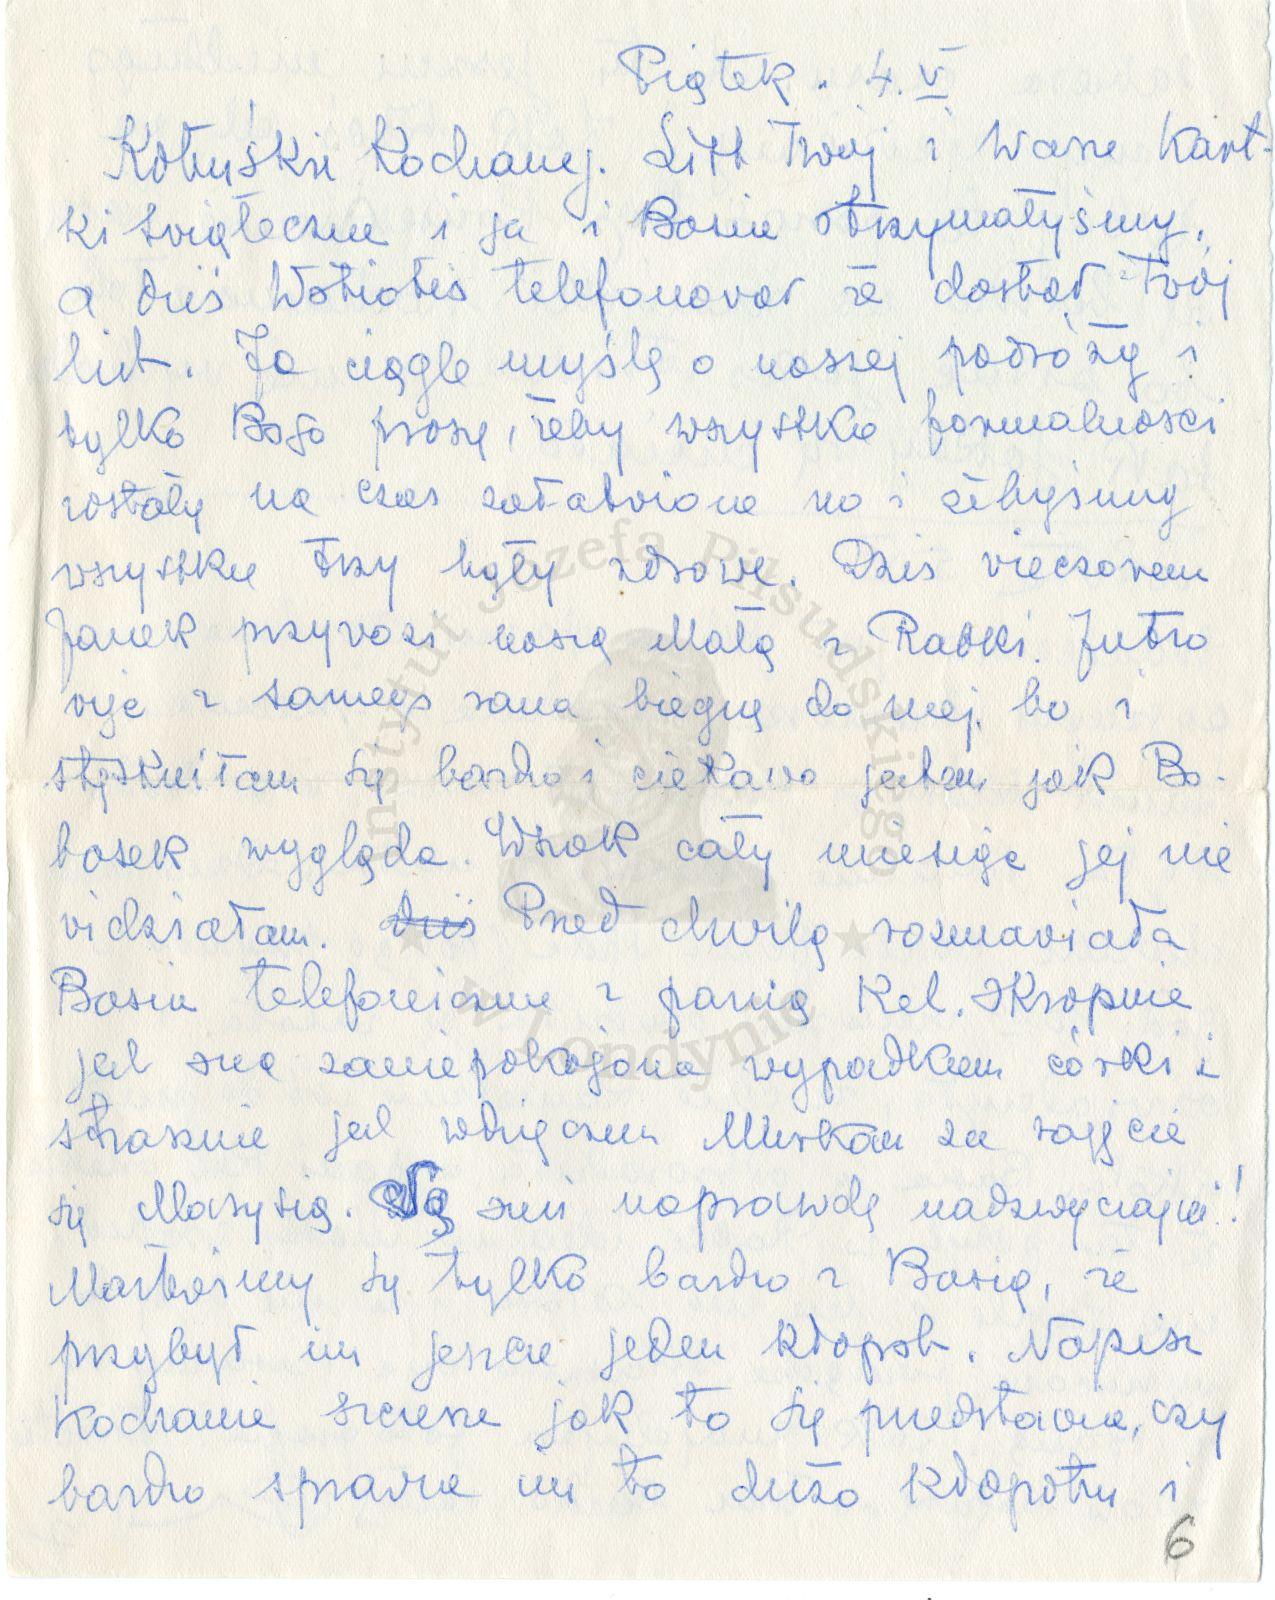 Piątek. 4.V
Kotuśki Kochanej. List Twój i Wasze Kart-
ki świąteczne i ja i Basia otrzymałyśmy,
a dziś telefonował że dostał Twój
list. Ja ciągle myślę o naszej podróży i
tylko Boga proszę, żeby wszystkie formalności
zostały na czas załatwione no i żebyśmy
wszystkie trzy były zdrowe. Dziś wieczorem
Janek przywozi naszą Małą z Rabki. Jutro
więc z samego rana biegnę do niej, bo i
stęskniłam się bardzo i ciekawa jestem jak Bo-
bosek wygląda. Wszak cały miesiąc jej nie
widziałam. dziś Przed chwilą rozmawiała
Basia telefonicznie z panią Kel. Okropnie
jest ona zaniepokojona wypadkiem córki i
strasznie jest wdzięczna Mirkom za zajęcie
się Marysią. Są oni naprawdę nadzwyczajni!
Martwimy się tylko bardzo z Basią, że
przybył im jeszcze jeden kłopot. Napisz
Kochanie szczerze jak to się przedstawia, czy
bardzo sprawia im to dużo kłopotu i
6
Instytut Józefa Piłsudskiego
w Londynie